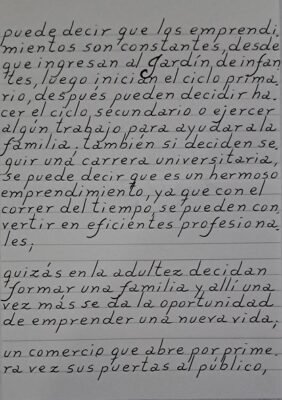 puede decir que los emprendi-
mientos son constantes, desde
que ingresan al Jardín de infan
tes, luego inician el ciclo prima-
rio, después pueden decidir ha-
cer el ciclo secundario o ejercer
algún trabajo para ayudar a la
familia; también si deciden se-
guir una carrera universitaria,
se puede decir que es un hermoso
emprendimiento, ya que con el
correr del tiempo, se pueden con-
vertir en eficientes profesiona-
les;
quizás en la adultez decidan
formar una familia y allí una
vez más se da la oportunidad
de emprender una nueva vida;
un comercio que abre por prime-
ra vez sus puertas al público,